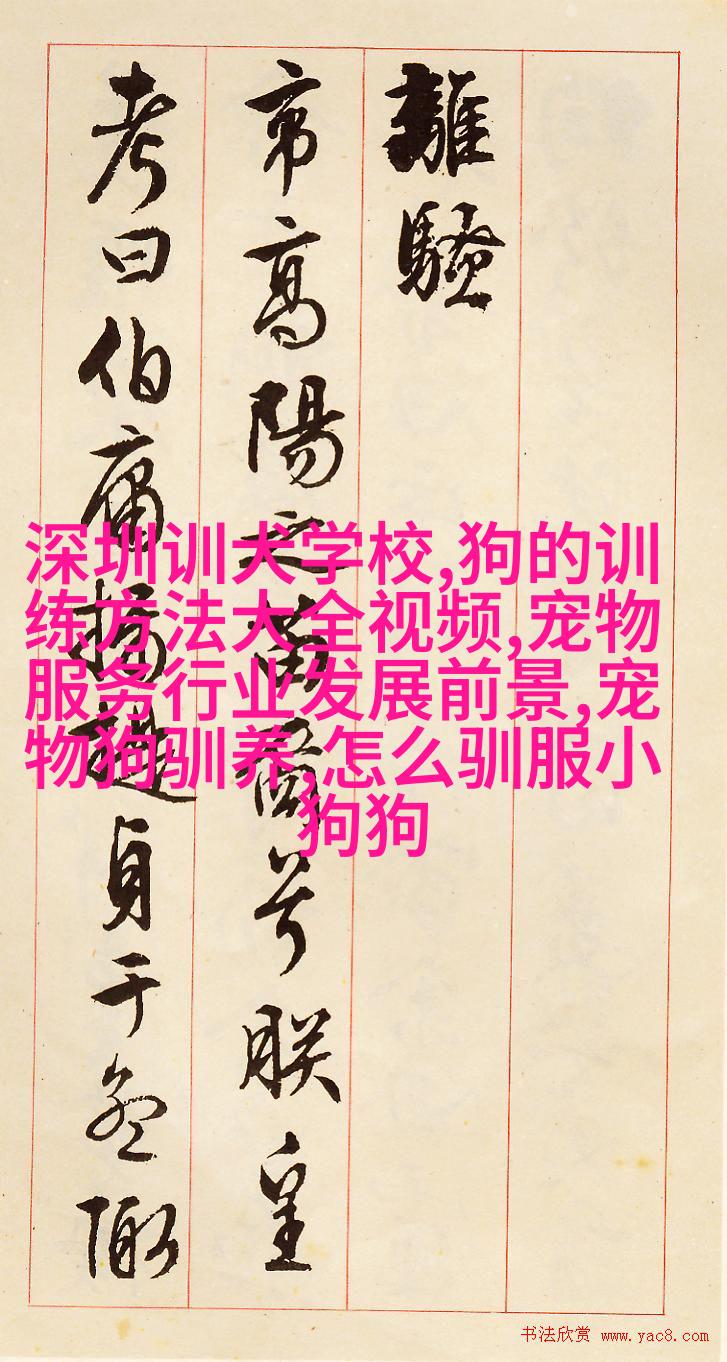 離騷
帝高陽之苗裔兮朕皇
考曰伯庸攝提貞于孟陬
深圳训犬学校,狗的训
练方法大全视频,宠物
服务行业发展前景,宠
物狗驯养,怎么驯服小
狗狗
书法欣赏 www.yac8.com